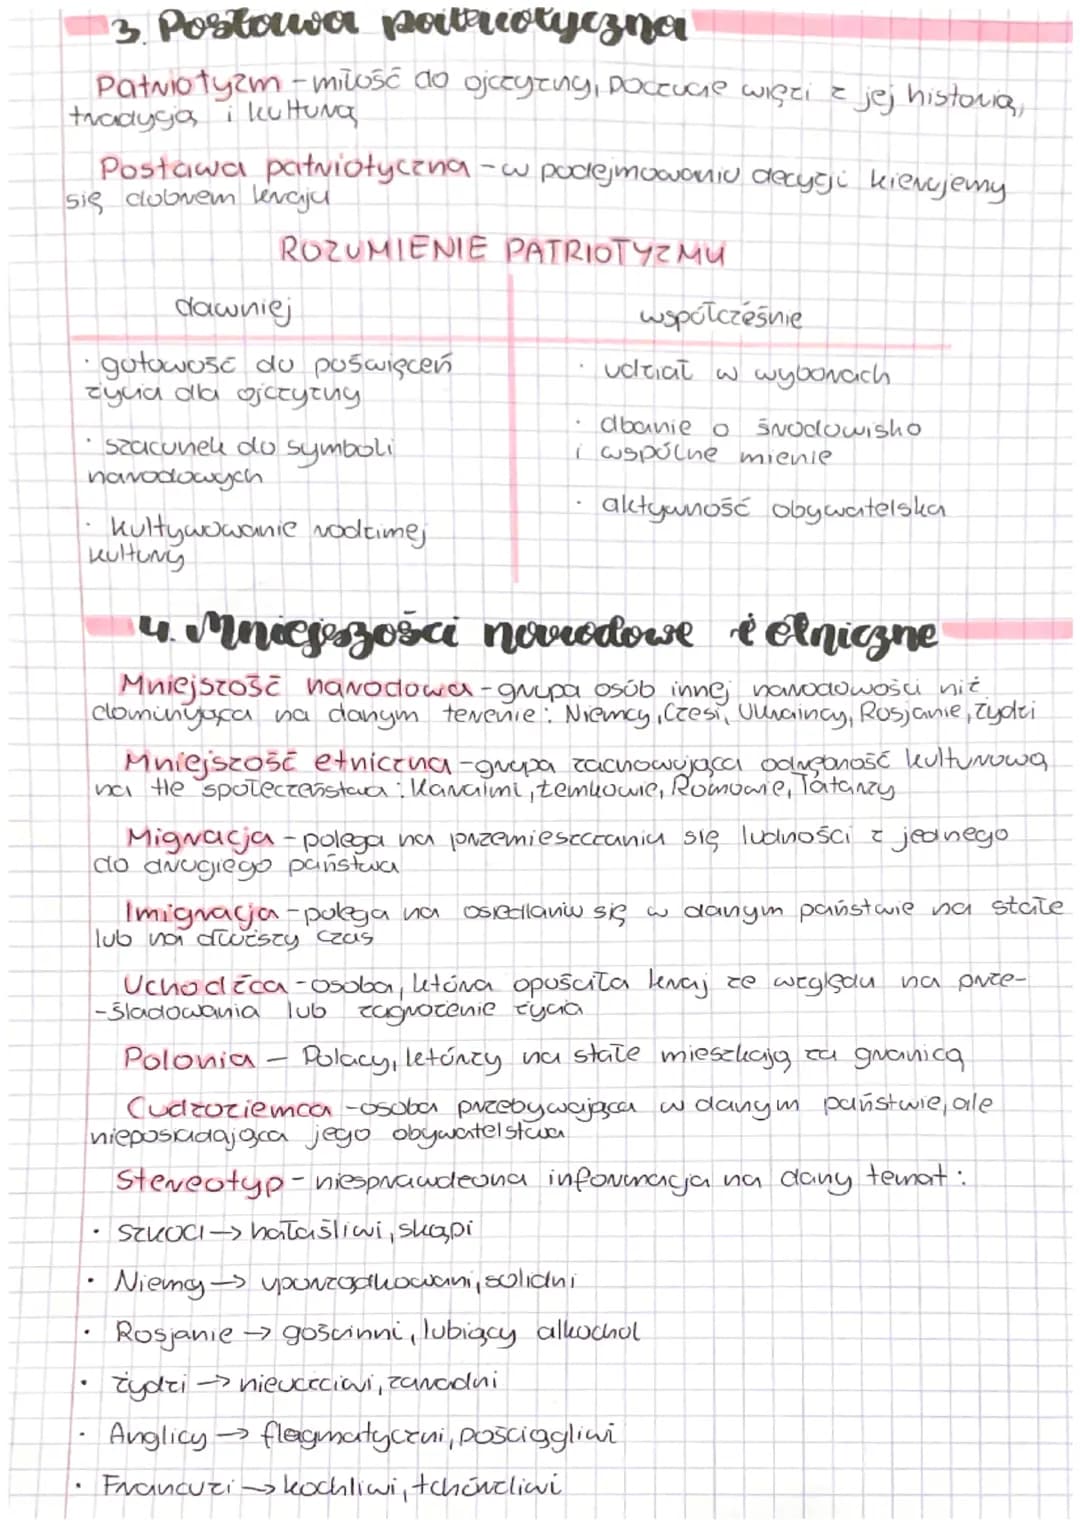 3. Postawa patriotyczna
Patriotyzm - miłość do ojczyzny, poczucie więzi z jej historią,
tradycją i kulturą
Postawa patriotyczna - w podejmowaniu decyzji kierujemy
się dobrem kraju
ROZUMIENIE PATRIOTYZMU
dawniej
· gotowość do poświęceń
życia dla ojczyzny
· szacunek do symboli
narodowych
· kultywowanie rodzimej
kultury
współcześnie
· udział w wyborach
· dbanie o środowisko
i wspólne mienie
· aktywność obywatelska
4. Mniejszości narodowe i etniczne
Mniejszość narodowa - grupa osób innej narodowości niż
dominująca na danym terenie: Niemcy, Czesi, Ukraincy, Rosjanie, Żydzi
Mniejszość etniczna - grupa zachowująca odrębność kulturową
na tle społeczeństwa: Karaimi, Łemkowie, Romowie, Tatarzy
Migracja - polega na przemieszczaniu się ludności z jednego
do drugiego państwa
Imigracja - polega na osiedlaniu się w danym państwie na stałe
lub na dłuższy czas
Uchodźca - osoba, która opuściła kraj ze względu na prze-
-śladowania lub zagrożenie życia
Polonia - Polacy, którzy na stałe mieszkają za granicą
Cudzoziemca - osoba przebywająca w danym państwie, ale
nieposiadająca jego obywatelstwa
Stereotyp - niesprawdzona informacja na dany temat:
· Szkoci → hałaśliwi, skąpi
· Niemcy → uporządkowani, solidni
· Rosjanie → gościnni, lubiący alkochol
· Żydzi → nieuczciwi, zaradni
· Anglicy → flegmatyczni, pościągliwi
· Francuzi → kochliwi, tchórzliwi